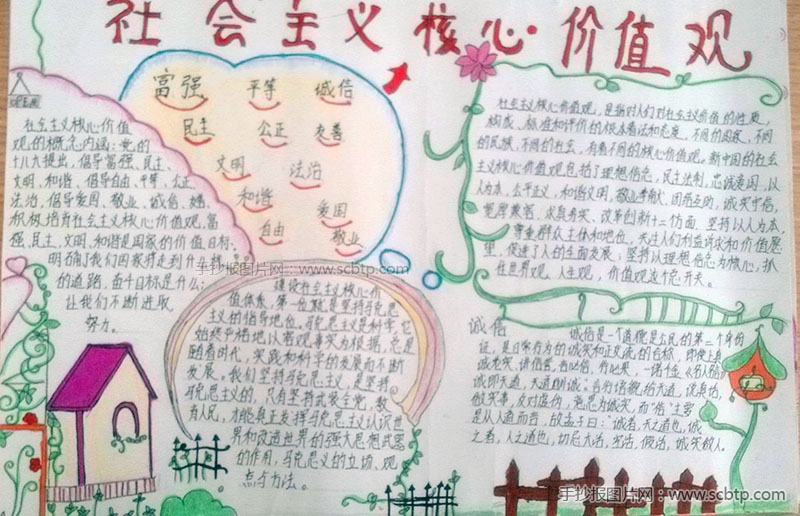 社会主义核心价值观
富强 平等 诚信
民主 公正 友善
文明 法治
和谐 爱国
自由 敬业
社会主义核心价值
观的概念内涵：党的
十八大提出，倡导富强、民主、
文明、和谐，倡导自由、平等、公正、
法治，倡导爱国、敬业、诚信、
积极培育社会主义核心价值观，富
强、民主、文明、和谐是国家的价值目标，
明确了我们国家将走到什么样
的道路，奋斗目标是什么；
让我们不断进取，
努力。
手抄报图片网：www.scbtp.com
建设社会主义核心价
值体系，第一位就是坚持马克思
主义的指导地位，马克思主义是科学，它
始终严格地以客观事实为根据，总是
随着时代，实践和科学的发展而不断
发展。我们坚持马克思主义，是坚持
马克思主义的，只有坚持武装全党，教
育人民，才能真正发挥马克思主义认识世
界和改造世界的强大思想武器
的作用，马克思主义的立场、观
点与方法。
社会主义核心价值观，是指对人们对社会主义价值的性质，
构成、标准和评价的根本看法和态度，不同的国家，不同
的民族，不同的社会，有着不同的核心价值观。新中国的社会
主义核心价值观包括了理想信念，民主法制，忠诚爱国，以
人为本，公平正义，和谐文明，敬业奉献，团结互助，诚实守信，
求真务实、改革创新十二方面，坚持以人为本
尊重群众主体和地位，关注人们利益诉求和价值愿
望，促进了人的全面发展；坚持以理想信念为核心，抓
住世界观、人生观，价值观这个总开关。
诚信
诚信是一个道德是公民的第二个身份
证，是日常行为的诚实和正式交流的合称，即待人
诚老实、讲信誉，言必信，行必果，一诺千金
之者，人之道也，切忌大话，空话，假话，诚实做人。
手抄报图片网：www.scbtp.com